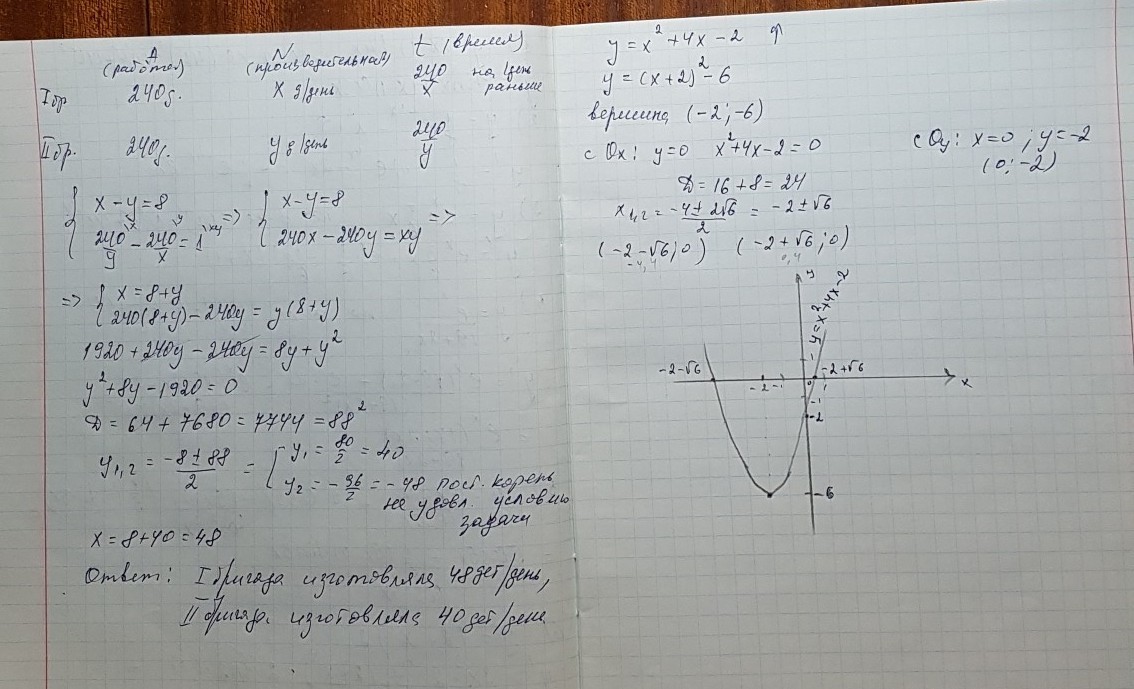 A N t (время)
(работа) (производительная)
I бр 240 д. x д/день 240/x на 1 день раньше
II бр. 240 д. y д/день 240/y
{ x-y=8
240/y - 240/x = 1 =>
{ x-y=8
240x-240y=xy =>
=> { x=8+y
240(8+y)-240y=y(8+y)
1920+240y-240y=8y+y²
y²+8y-1920=0
D=64+7680=7744=88²
y₁,₂ = (-8±88)/2 = [ y₁ = 80/2 = 40
y₂ = -96/2 = -48 пост. корень
не удовл. условию
задачи
x=8+40=48
Ответ: I бригада изготовляла 48 дет/день,
II бригада изготовляла 40 дет/день
y=x²+4x-2 ↑
y=(x+2)²-6
вершина (-2;-6)
с Ox: y=0 x²+4x-2=0
D=16+8=24
x₁,₂ = (-4±2√6)/2 = -2±√6
(-2-√6;0) (-2+√6;0)
-4,4 0,4
с Oy: x=0; y=-2
(0;-2)
y
y=x²+4x-2
1
-2-√6 -2 -1 0 1 -2+√6
x
-1
-2
-6